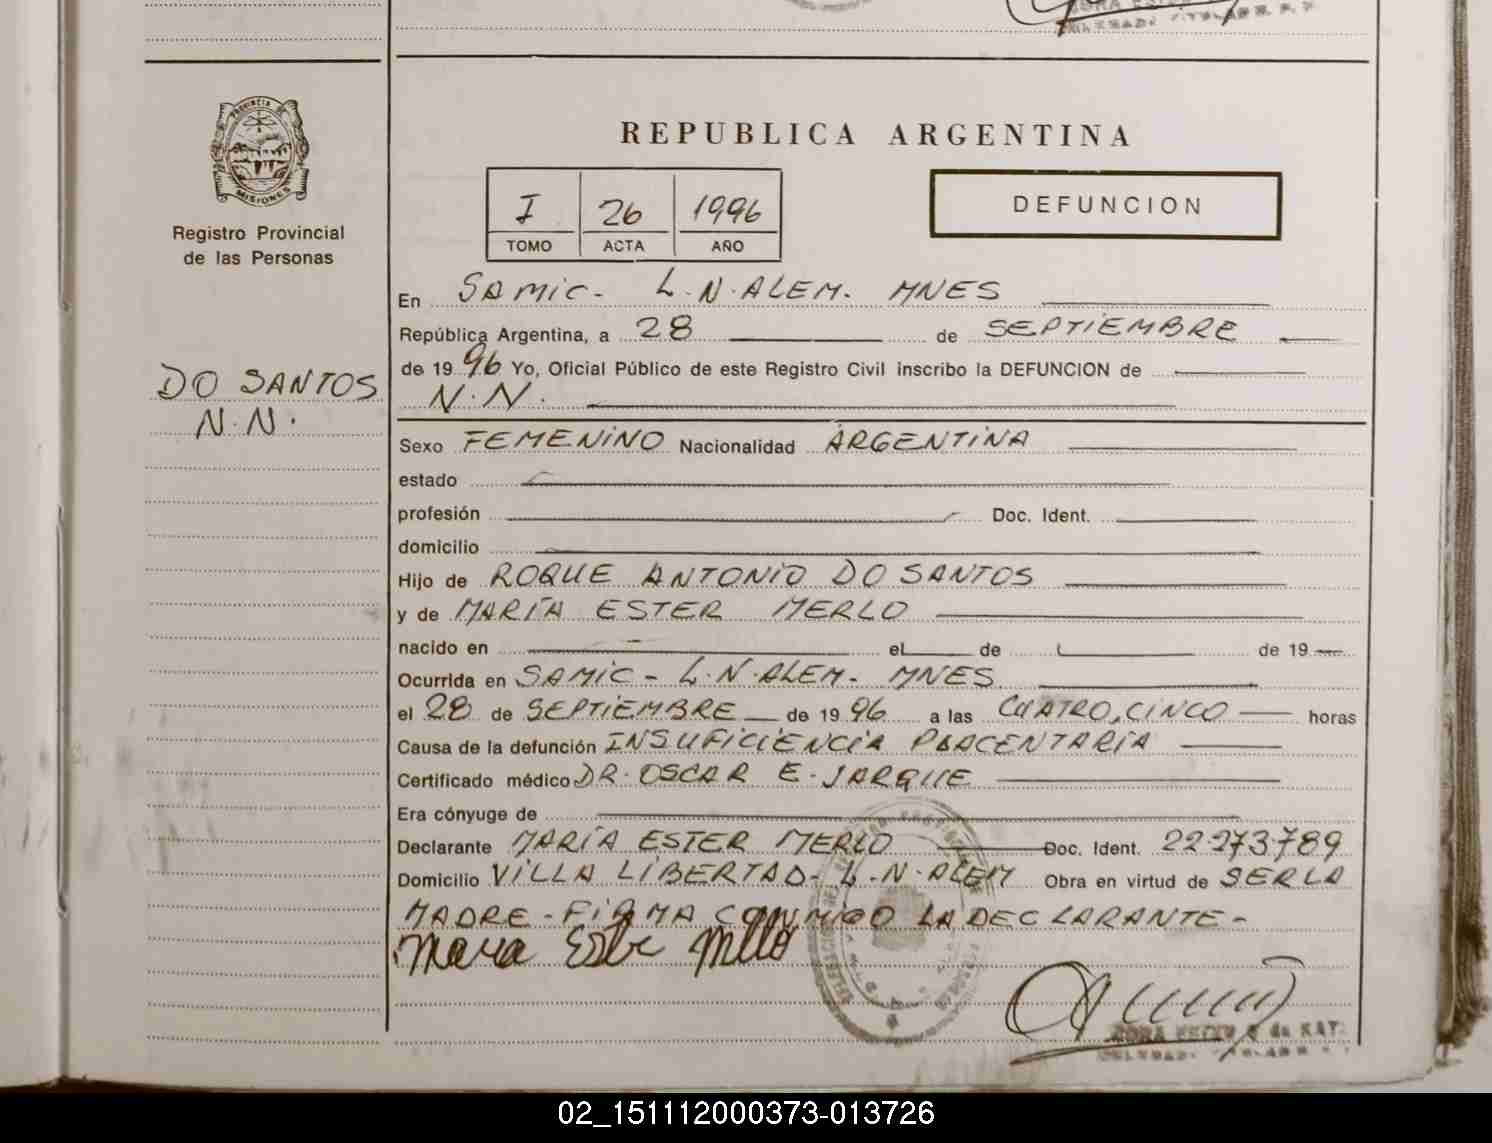 PROVINCIA DE
MISIONES
Registro Provincial
de las Personas
DO SANTOS
N.N.
REPUBLICA ARGENTINA
I 26 1996
TOMO ACTA AÑO
DEFUNCION
En SAMIC- L.N.ALEM. MNES
República Argentina, a 28 de SEPTIEMBRE
de 19 96 Yo, Oficial Público de este Registro Civil inscribo la DEFUNCION de
N.N.
Sexo FEMENINO Nacionalidad ARGENTINA
estado
profesión Doc. Ident.
domicilio
Hijo de ROQUE ANTONIO DO SANTOS
y de MARÍA ESTER MERLO
nacido en el de de 19
Ocurrida en SAMIC - L.N.ALEM- MNES
el 28 de SEPTIEMBRE de 19 96 a las CUATRO, CINCO horas
Causa de la defunción INSUFICIENCIA PLACENTARIA
Certificado médico DR. OSCAR E. JARQUE
Era cónyuge de
Declarante MARÍA ESTER MERLO Doc. Ident. 22.273.789
Domicilio VILLA LIBERTAD- L.N.ALEM Obra en virtud de SER LA
MADRE - FIRMA CONMIGO LA DECLARANTE-
Maria Ester Merlo
02_151112000373-013726